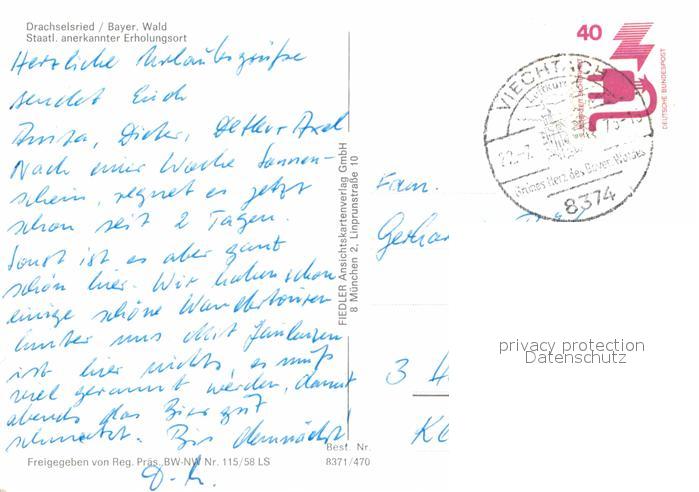 Drachselsried / Bayer. Wald
Staatl. anerkannter Erholungsort
Herzliche Urlaubsgrüße
sendet Euch
Anita, Dieter, Detlev + Axel
Nach einer Woche Sonnen-
schein, regnet es jetzt
schon seit 2 Tagen.
Sonst ist es aber ganz
schön hier. Wir haben schon
einige schöne Wandertouren
hinter uns. Mit
ist hier nichts, es muß
viel gerannt werden, damit
abends das Bier gut
schmeckt. Bis demnächst!
Freigegeben von Reg. Präs. BW-NW Nr. 115/58 LS
Best. Nr.
8371/470
FIEDLER Ansichtskartenverlag GmbH
8 München 2, Linprunstraße 10
Fam.
Gerhar
3 H
40
DEUTSCHE BUNDESPOST
VIECHTACH
Luftkur
22.-7.
Grünes Herz des Bayer. Waldes
8374
privacy protection
Datenschutz